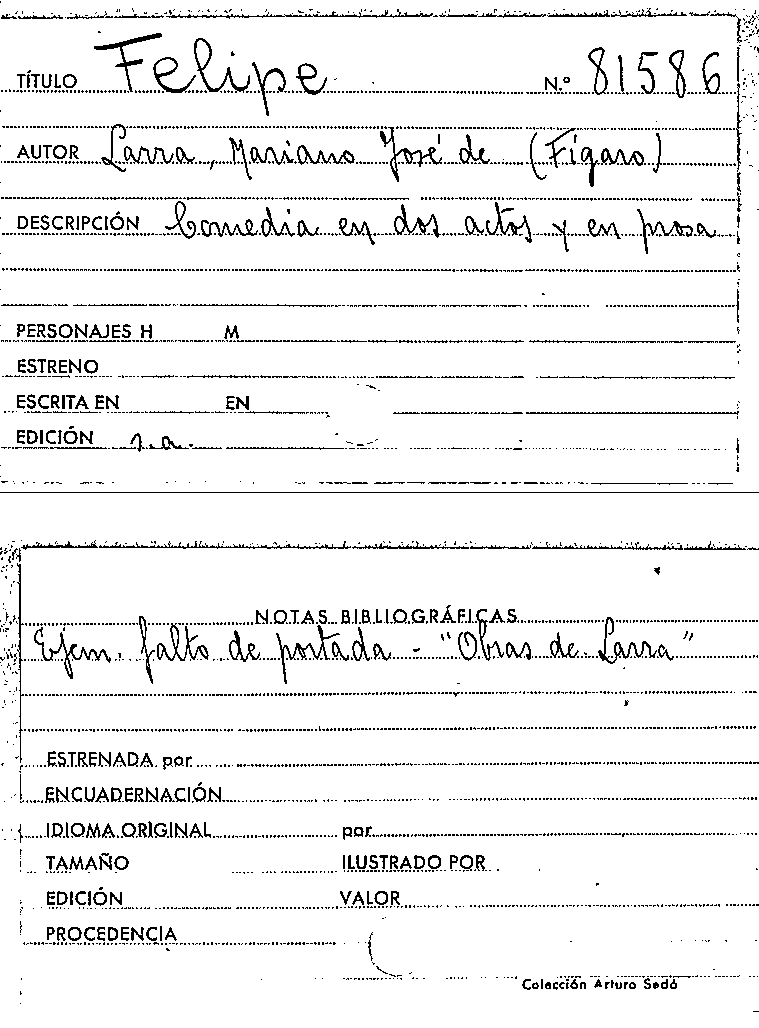 TÍTULO Felipe N.º 81586
AUTOR Larra, Mariano José de (Fígaro)
DESCRIPCIÓN Comedia en dos actos y en prosa
PERSONAJES H M
ESTRENO
ESCRITA EN EN
EDICIÓN s.a.
NOTAS BIBLIOGRÁFICAS
Ejem. falto de portada - "Obras de Larra"
ESTRENADA por
ENCUADERNACIÓN
IDIOMA ORIGINAL por
TAMAÑO ILUSTRADO POR
EDICIÓN VALOR
PROCEDENCIA
Colección Arturo Sedó